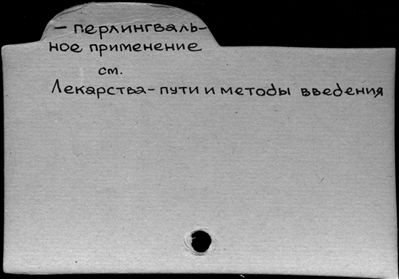 — перлингваль-
ное применение
см.
Лекарства - пути и методы введения